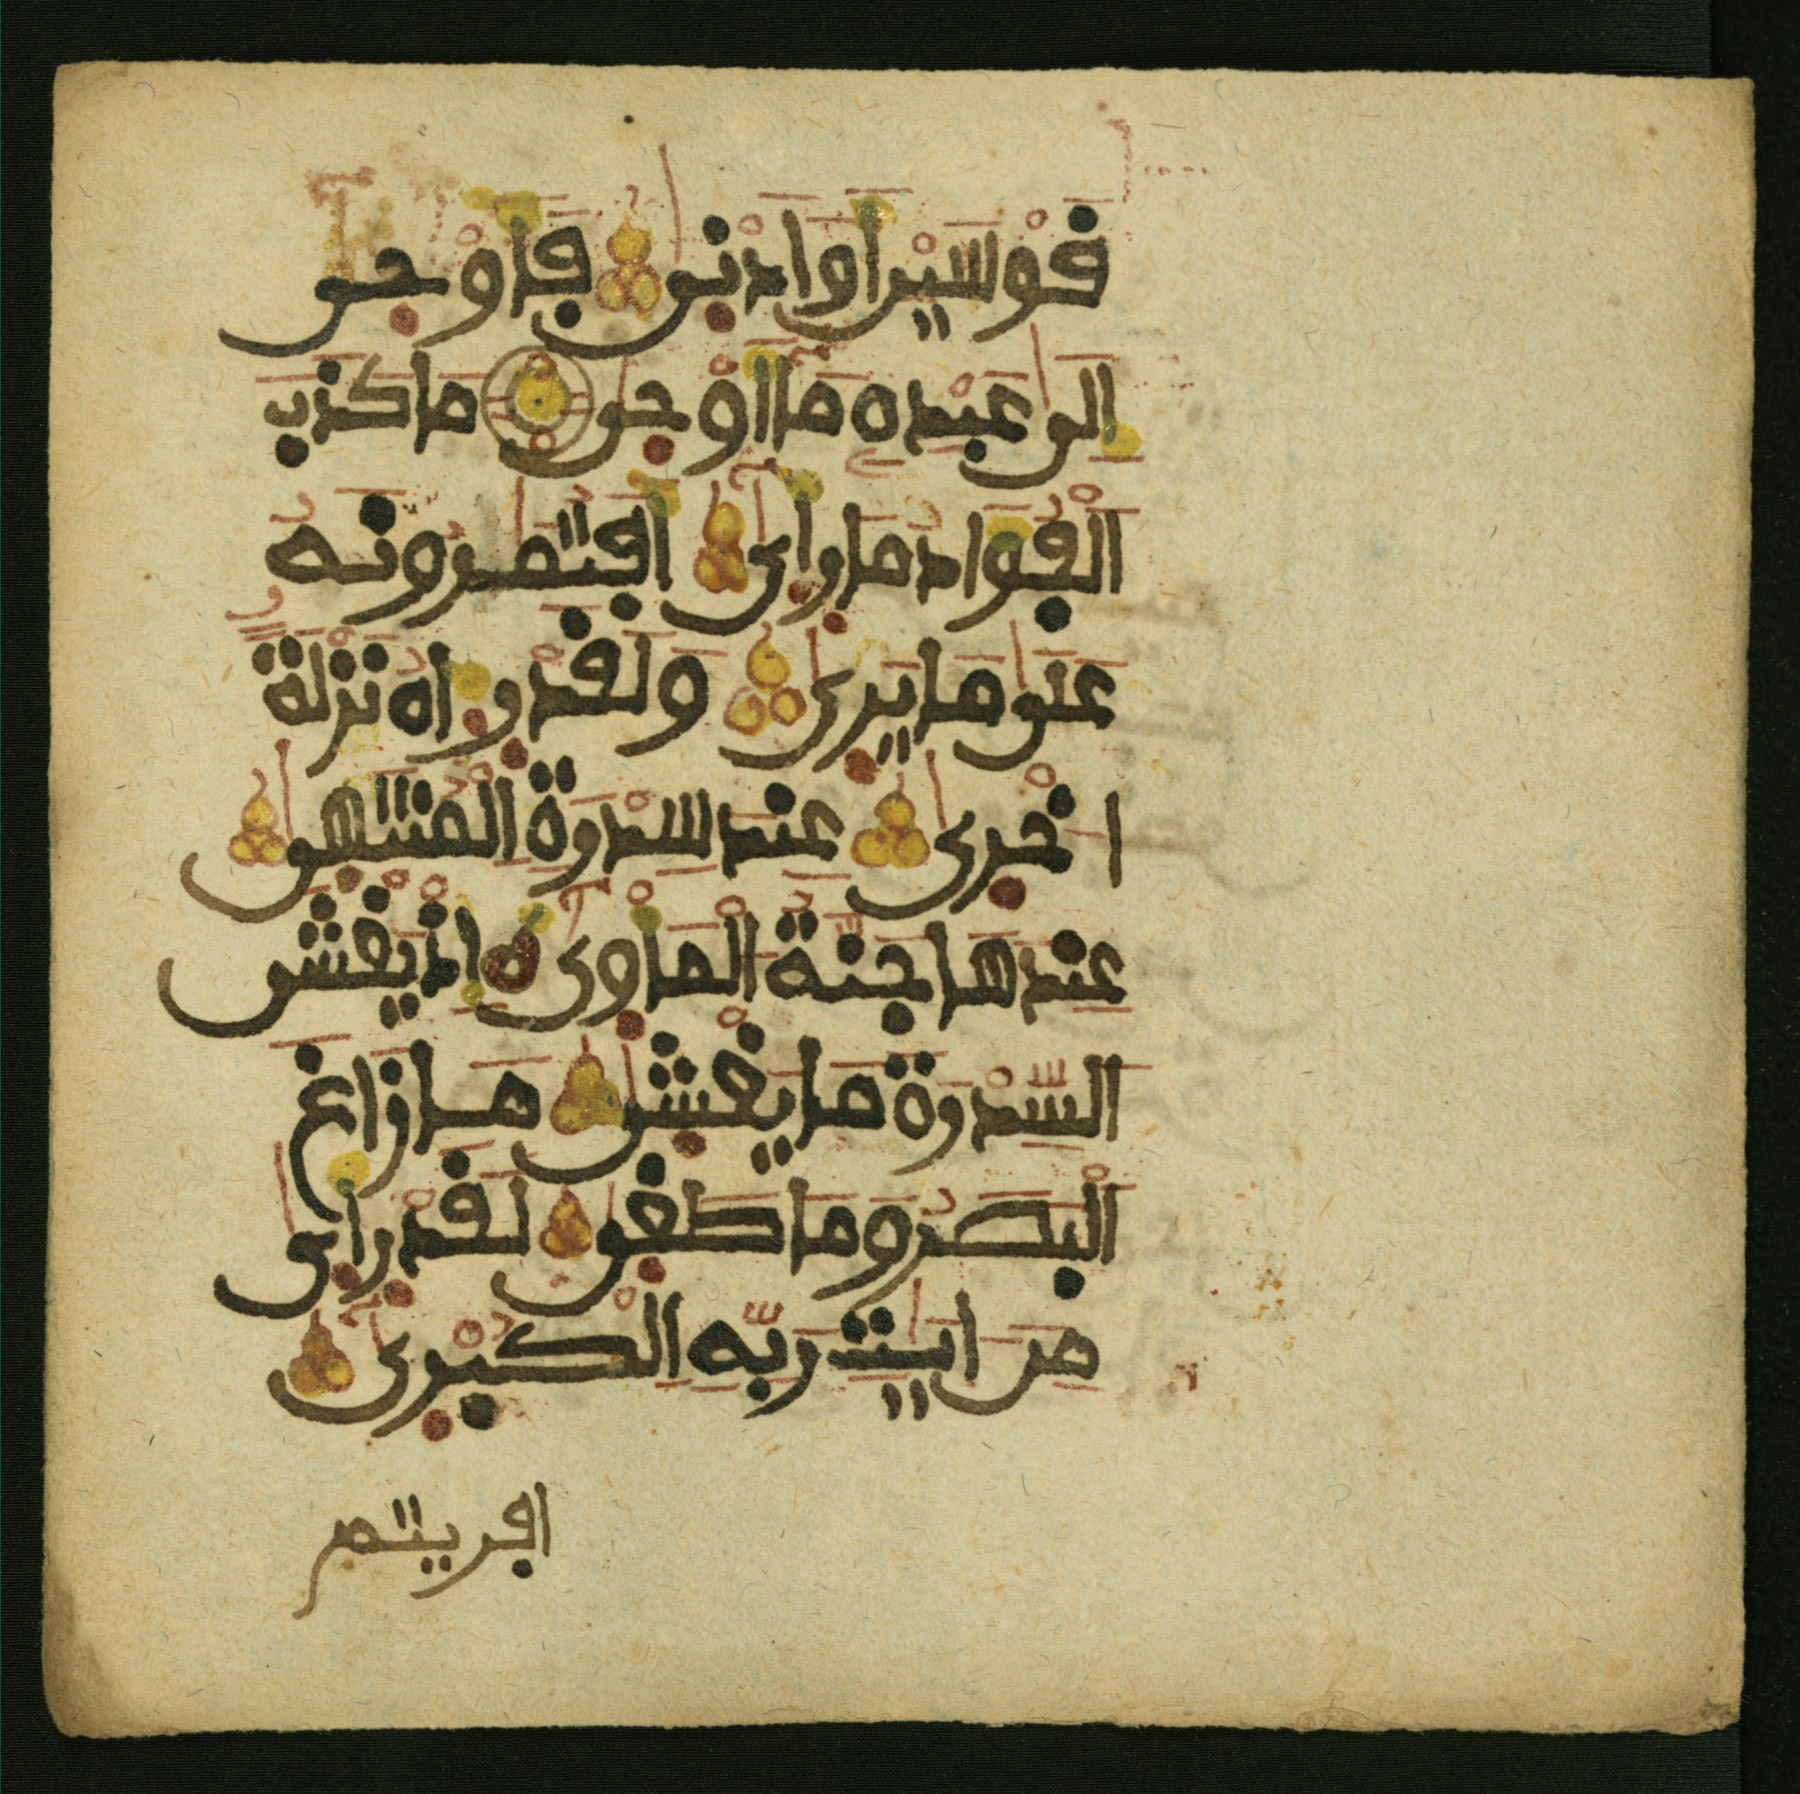 قوسين أو أدنى فأوحى
إلى عبده ما أوحى ما كذب
الفؤاد ما رأى أفتمرونه
على ما يرى ولقد رءاه نزلة
أخرى عند سدرة المنتهى
عندها جنة المأوى إذ يغشى
السدرة ما يغشى ما زاغ
البصر وما طغى لقد رأى
من ءايت ربه الكبرى
افريتم